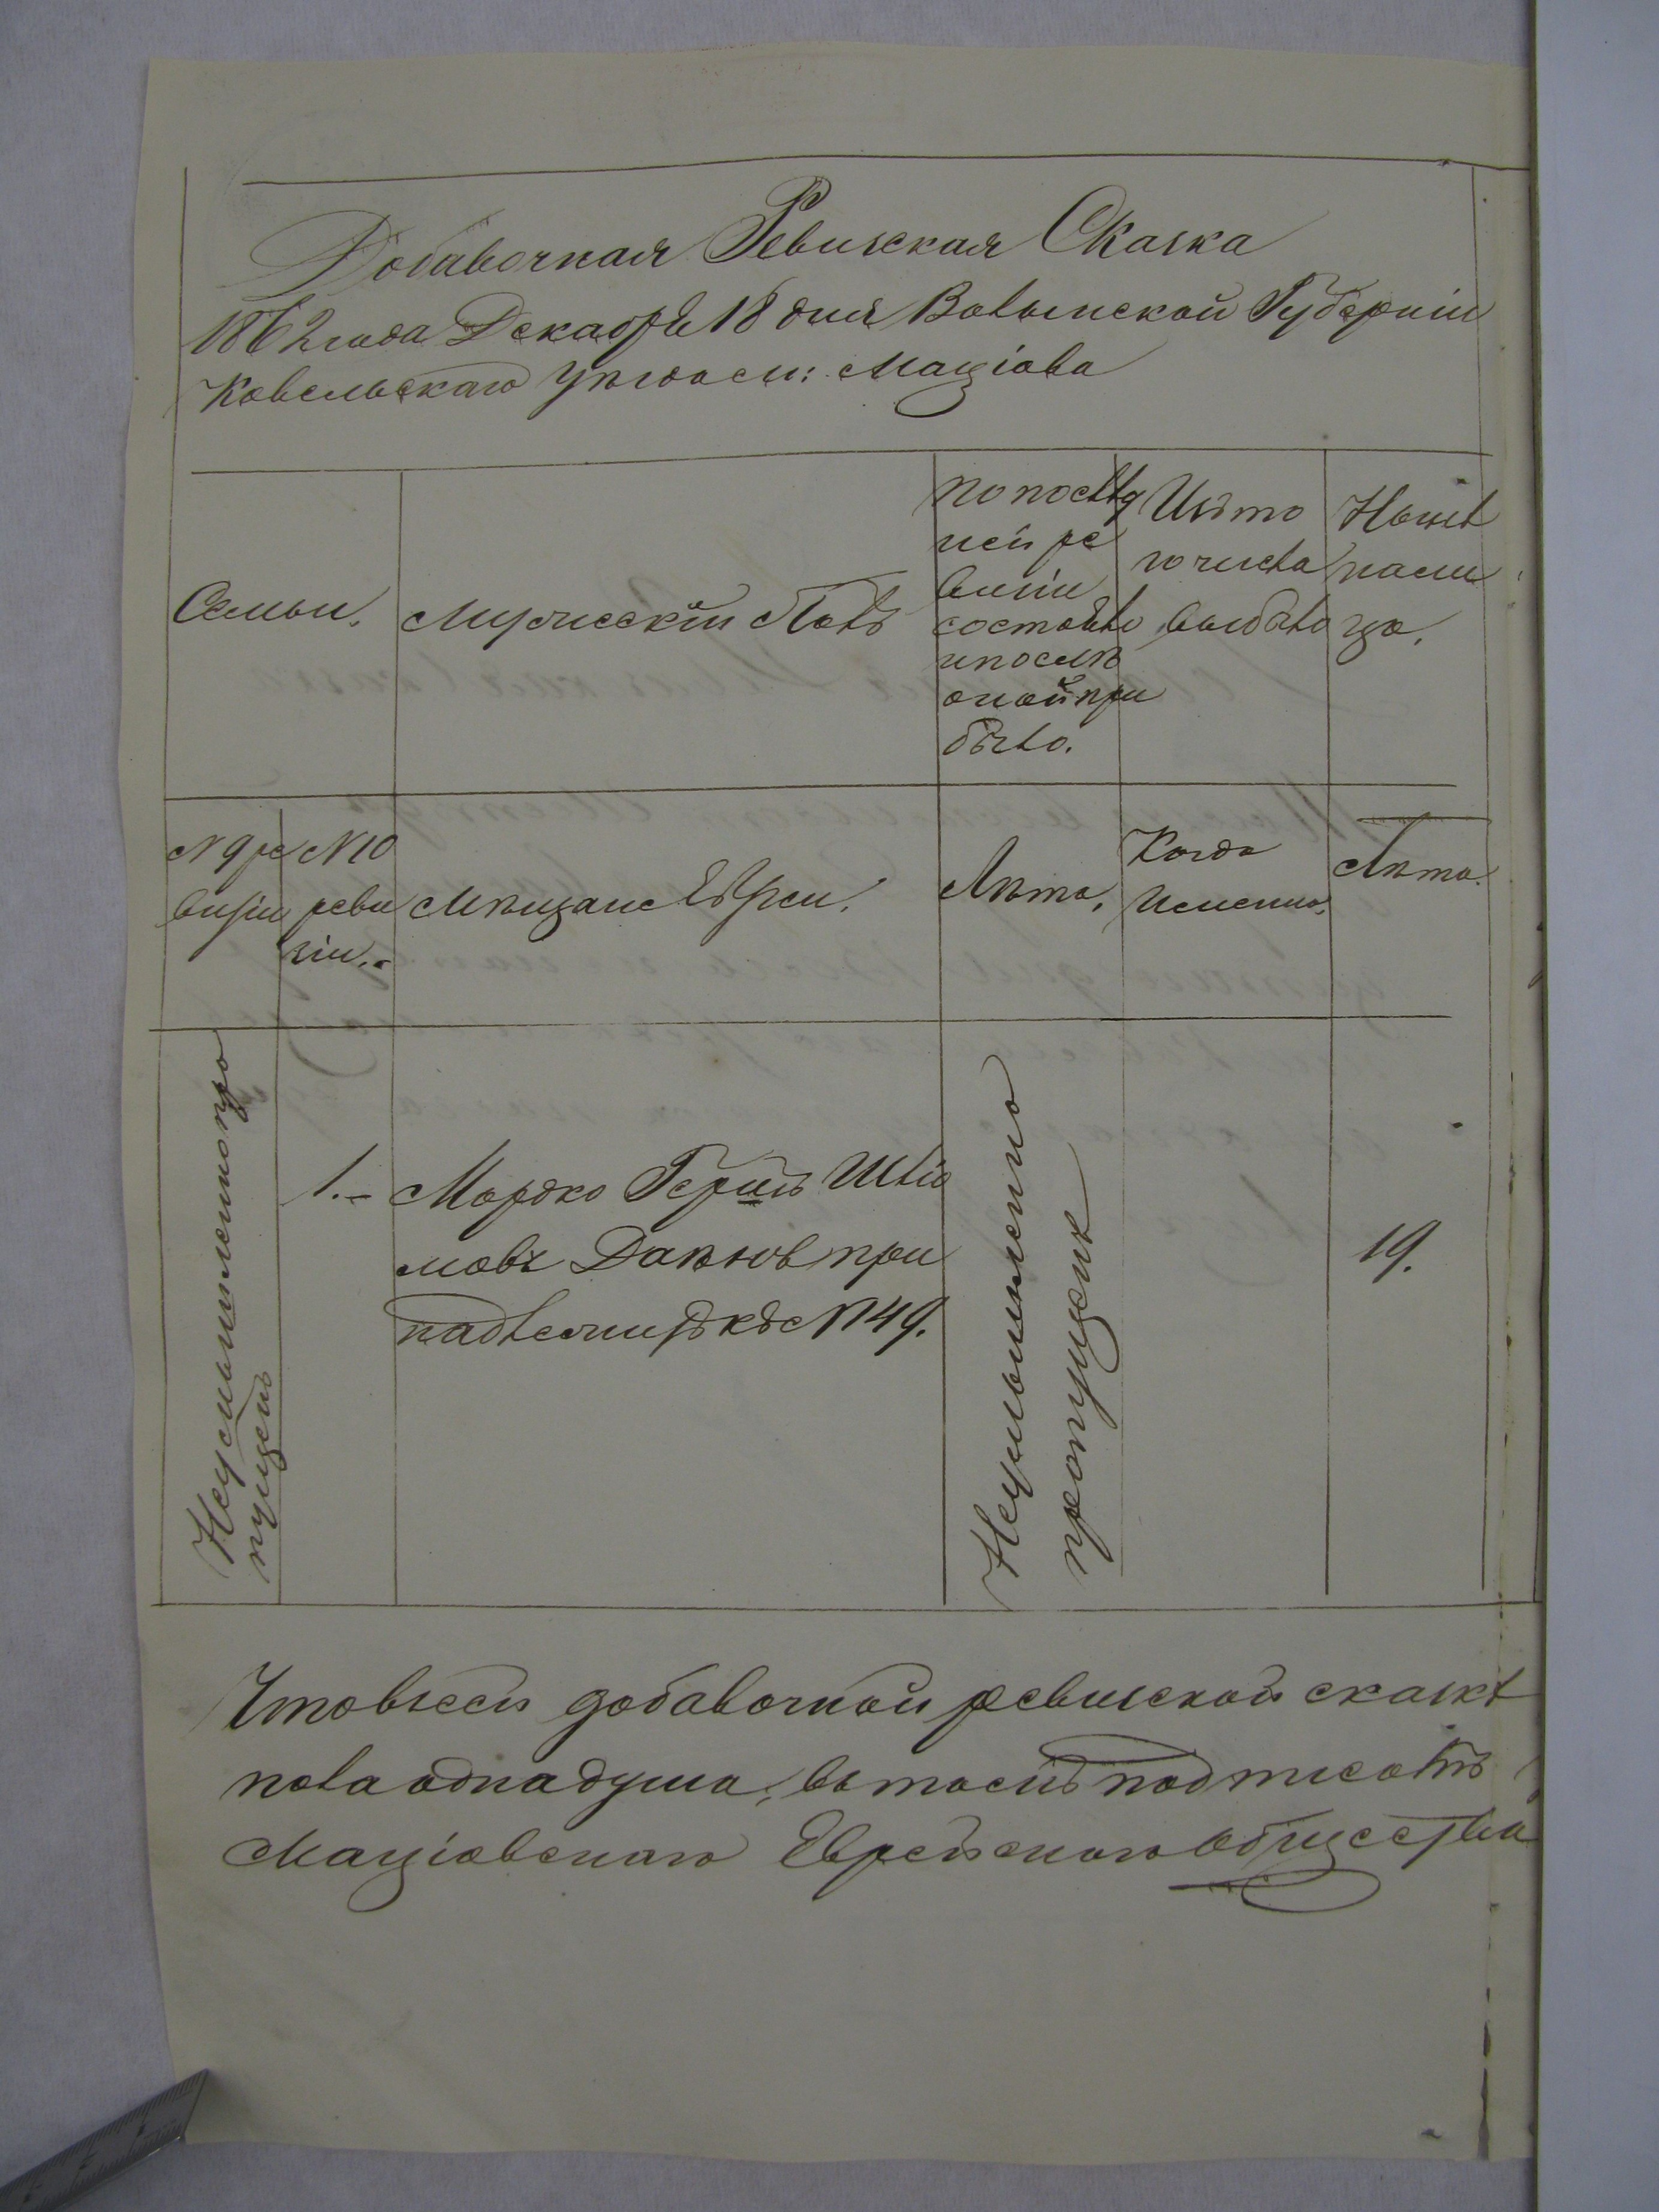 Добавочная Ревизская Сказка
1862 года Декабря 18 дня Волынской Губерніи
Ковельскаго Уѣзда м: Маціова
Семьи.
Мужескій Полъ
По послѣд
ней ре
визіи
состояло
и послѣ
оной при
было.
Изъ то
го числа
выбыло
Нынѣ
нали
цо.
№ 9 ре
визіи
№ 10
реви
зіи.
Мѣщане Евреи.
Лѣта.
Когда
именно.
Лѣта.
Неумышленно про
пущенъ
1.
Мордко Гершъ Шліо
мовъ при
надлежитъ къ № 49.
Неумышленно
пропущенъ
19.
Что в сей добавочной ревизской сказкѣ
пола одна душа, въ томъ подписомъ
Маціовскаго Еврейскаго Общества